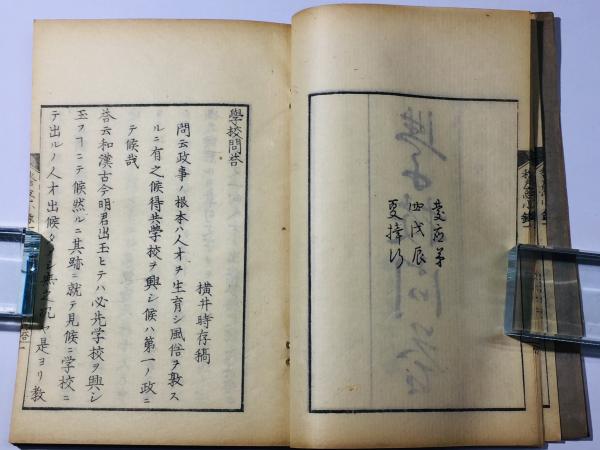 慶応第
四戊辰
夏擇行
學校問答
横井時存稿
問云政事ノ根本ハ人才ヲ生育シ風俗ヲ敦ス
ルニ有之候得共學校ヲ興シ候ハ第一ノ政ニ
テ候哉
答云和漢古今明君出玉ヒテハ必先学校ヲ興シ
玉フヿニテ候然ルニ其跡ニ就テ見候ニ学校ニ
テ出ルノ人才出候タメシ無之況ヤ是ヨリ教